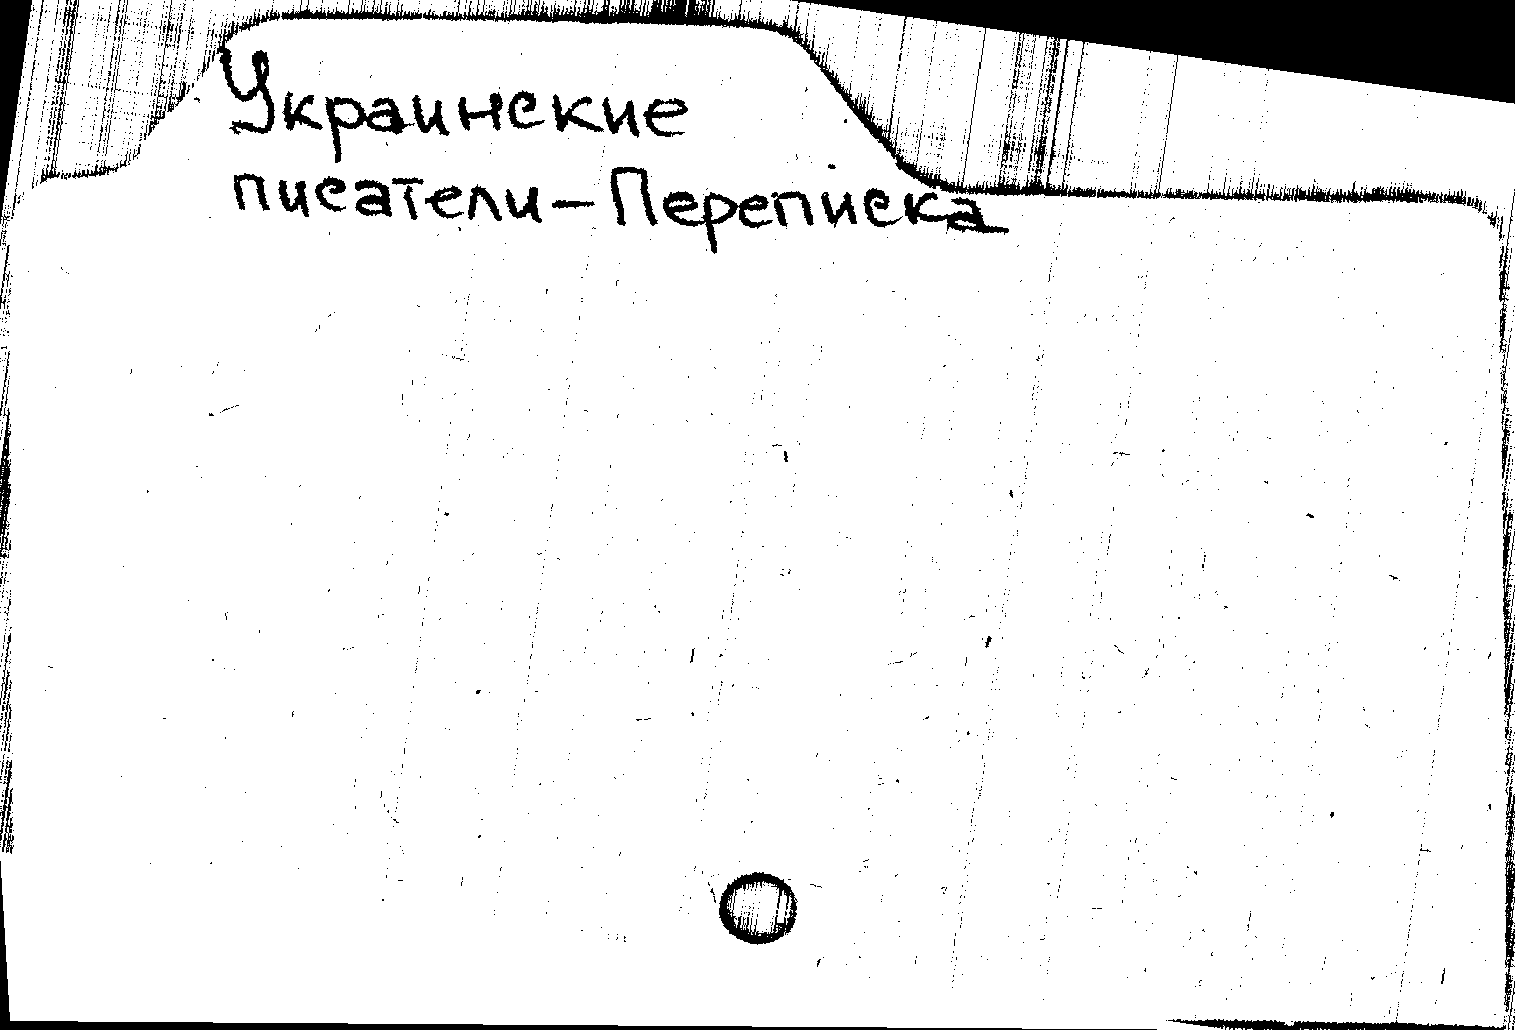 Украинские
писатели – Переписка